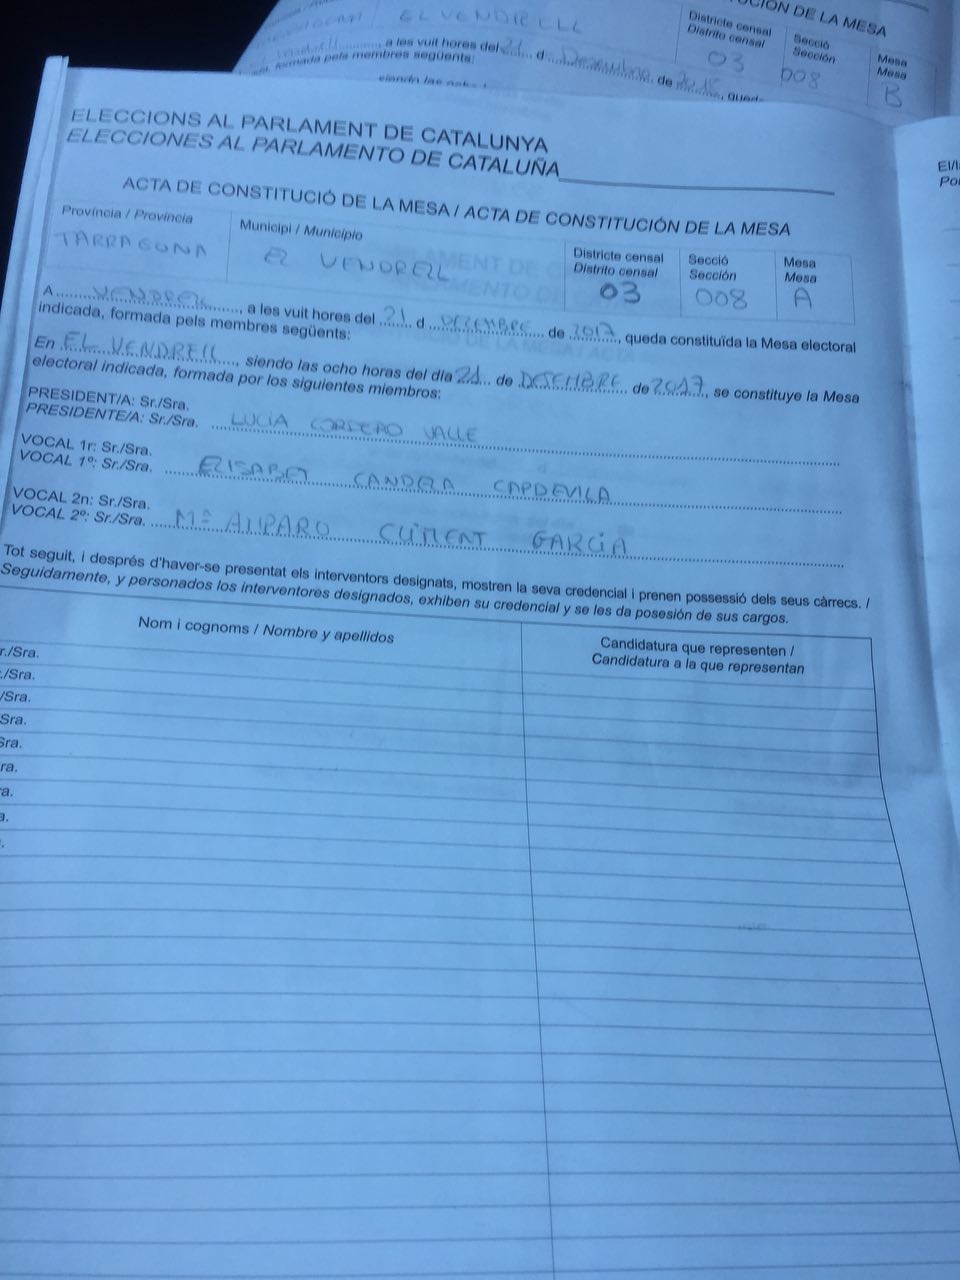 CIÓN DE LA MESA
EL VENDRELL
Districte censal
Distrito censal
03
Secció
Sección
008
Mesa
Mesa
B
, a les vuit hores del 21 d Dezembre de
formada pels membres següents:
ELECCIONS AL PARLAMENT DE CATALUNYA
ELECCIONES AL PARLAMENTO DE CATALUÑA
ACTA DE CONSTITUCIÓ DE LA MESA / ACTA DE CONSTITUCIÓN DE LA MESA
Província / Provincia
TARRAGONA
Municipi / Municipio
EL VENDRELL
Districte censal
Distrito censal
03
Secció
Sección
008
Mesa
Mesa
A
A VENDRELL, a les vuit hores del 21 d DEZEMBRE de 2017, queda constituïda la Mesa electoral
indicada, formada pels membres següents:
En EL VENDRELL, siendo las ocho horas del día 21 de DESEMBRE de 2017, se constituye la Mesa
electoral indicada, formada por los siguientes miembros:
PRESIDENT/A: Sr./Sra.
PRESIDENTE/A: Sr./Sra. LUCIA CORDERO VALLE
VOCAL 1r: Sr./Sra.
VOCAL 1º: Sr./Sra. ELISABET CANDELA CAPDEVILA
VOCAL 2n: Sr./Sra.
VOCAL 2º: Sr./Sra. Mª AMPARO CLIMENT GARCIA
Tot seguit, i després d'haver-se presentat els interventors designats, mostren la seva credencial i prenen possessió dels seus càrrecs. /
Seguidamente, y personados los interventores designados, exhiben su credencial y se les da posesión de sus cargos.
Nom i cognoms / Nombre y apellidos
Candidatura que representen /
Candidatura a la que representan
r./Sra.
./Sra.
/Sra.
Sra.
Sra.
ra.
a.
a.